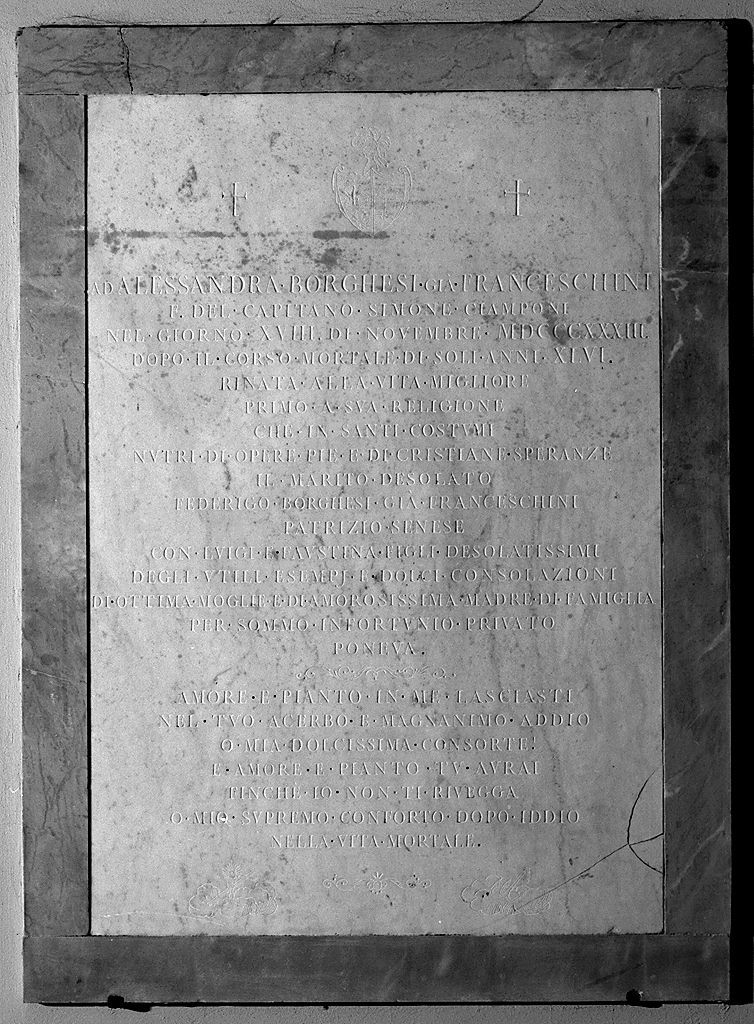 AD ALESSANDRA·BORGHESI·GIÀ·FRANCESCHINI
F. DEL·CAPITANO·SIMONE·CIAMPONI
NEL·GIORNO·XVIII. DI·NOVEMBRE·MDCCCXXXIII.
DOPO·IL·CORSO·MORTALE·DI·SOLI·ANNI·XLVI.
RINATA·ALLA·VITA·MIGLIORE
PRIMO·A·SVA·RELIGIONE
CHE·IN·SANTI·COSTVMI
NVTRI·DI·OPERE·PIE·E·DI·CRISTIANE·SPERANZE
IL·MARITO·DESOLATO
FEDERIGO·BORGHESI·GIÀ·FRANCESCHINI
PATRIZIO·SENESE
CON·LVIGI·E·FAVSTINA·FIGLI·DESOLATISSIMI
DEGLI·VTILI·ESEMPJ·E·DOLCI·CONSOLAZIONI
DI·OTTIMA·MOGLIE·E·DI·AMOROSISSIMA·MADRE·DI·FAMIGLIA
PER·SOMMO·INFORTVNIO·PRIVATO
PONEVA.
AMORE·E·PIANTO·IN·ME·LASCIASTI
NEL·TVO·ACERBO·E·MAGNANIMO·ADDIO
O·MIA·DOLCISSIMA·CONSORTE!
E·AMORE·E·PIANTO·TV·AVRAI
FINCHÈ·IO·NON·TI·RIVEGGA
O·MIO·SVPREMO·CONFORTO·DOPO·IDDIO
NELLA·VITA·MORTALE.